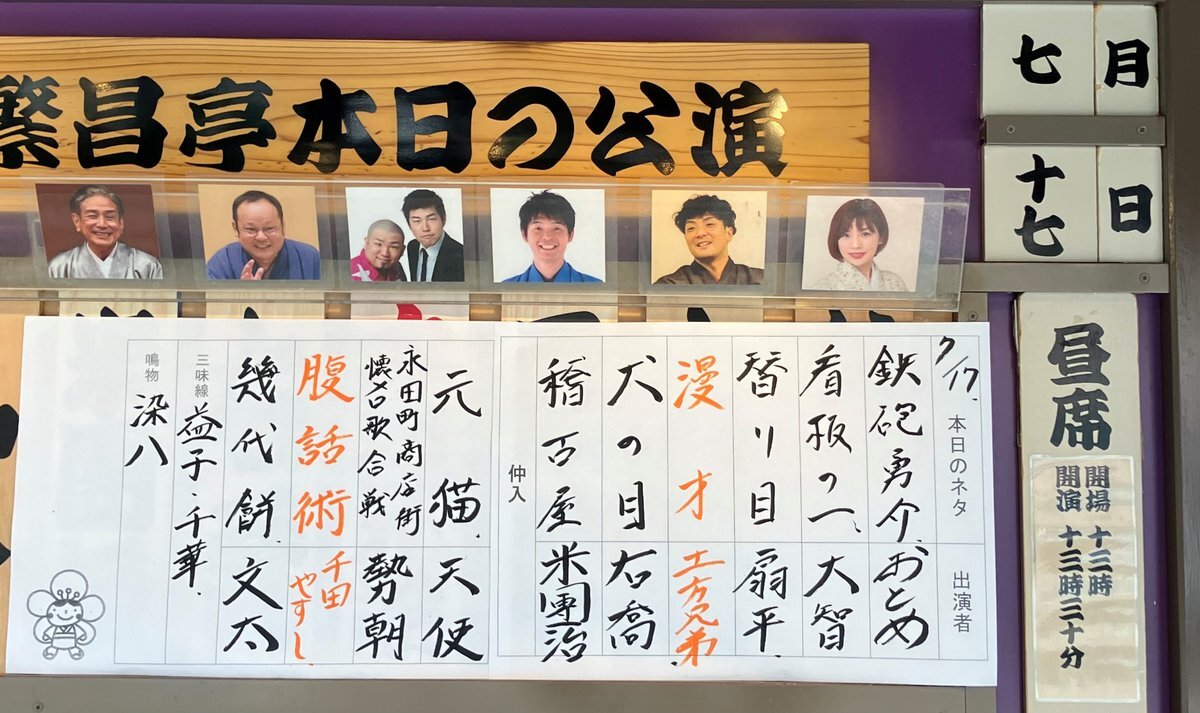 繁昌亭本日の公演
七月
十七日
昼席
開場 十三時
開演 十三時三十分
7/17 本日のネタ 出演者
鉄砲勇介 おとめ
看板の一 大智
替り目 扇平
漫才 土方兄弟
犬の目 右喬
稽古屋 米團治
仲入
元猫 天使
永田町商店街懐古歌合戦 勢朝
腹話術 千田やすし
幾代餅 文太
三味線 益子・千華
鳴物 染八